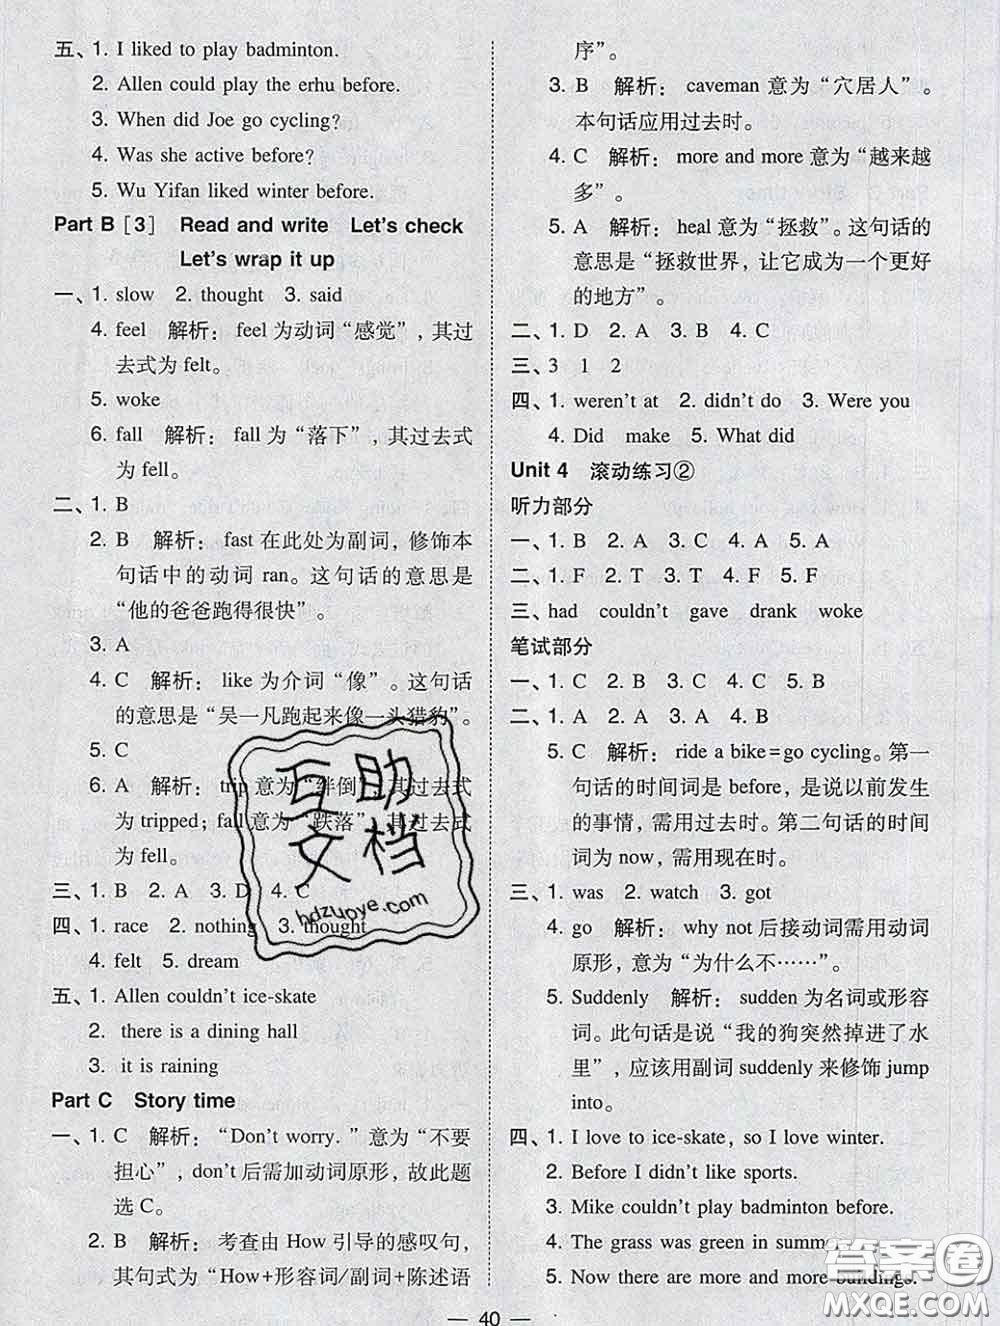 五、1. I liked to play badminton.
2. Allen could play the erhu before.
3. When did Joe go cycling?
4. Was she active before?
5. Wu Yifan liked winter before.
Part B［3］ Read and write Let's check
Let's wrap it up
一、1. slow 2. thought 3. said
4. feel 解析：feel 为动词“感觉”，其过
去式为 felt。
5. woke
6. fall 解析：fall 为“落下”，其过去式
为 fell。
二、1. B
2. B 解析：fast 在此处为副词，修饰本
句话中的动词 ran。这句话的意思是
“他的爸爸跑得很快”。
3. A
4. C 解析：like 为介词“像”。这句话
的意思是“吴一凡跑起来像一头猎豹”。
5. C
6. A 解析：trip 意为“绊倒”，其过去式
为 tripped；fall 意为“跌落”，其过去式
为 fell。
三、1. B 2. A 3. D 4. C
四、1. race 2. nothing 3. thought
4. felt 5. dream
五、1. Allen couldn't ice-skate
2. there is a dining hall
3. it is raining
Part C Story time
一、1. C 解析：“Don't worry.”意为“不要
担心”，don't 后需加动词原形，故此题
选 C。
2. B 解析：考查由 How 引导的感叹句，
其句式为“How+形容词/副词+陈述语
序”。
3. B 解析：caveman 意为“穴居人”。
本句话应用过去时。
4. C 解析：more and more 意为“越来越
多”。
5. A 解析：heal 意为“拯救”。这句话的
意思是“拯救世界，让它成为一个更好
的地方”。
二、1. D 2. A 3. B 4. C
三、3 1 2
四、1. weren't at 2. didn't do 3. Were you
4. Did make 5. What did
Unit 4 滚动练习②
听力部分
一、1. B 2. A 3. C 4. A 5. A
二、1. F 2. T 3. T 4. F 5. F
三、had couldn't gave drank woke
笔试部分
一、1. C 2. B 3. C 4. A 5. B
二、1. A 2. A 3. A 4. B
5. C 解析：ride a bike=go cycling。第一
句话的时间词是 before，是说以前发生
的事情，需用过去时。第二句话的时间
词为 now，需用现在时。
三、1. was 2. watch 3. got
4. go 解析：why not 后接动词需用动词
原形，意为“为什么不……”。
5. Suddenly 解析：sudden 为名词或形容
词。此句话是说“我的狗突然掉进了水
里”，应该用副词 suddenly 来修饰 jump
into。
四、1. I love to ice-skate, so I love winter.
2. Before I didn't like sports.
3. Mike couldn't play badminton before.
4. The grass was green in summer
5. Now there are more and more buildings.
40
互助
文档
hdzuoye.com
答案圈
MXQE.COM